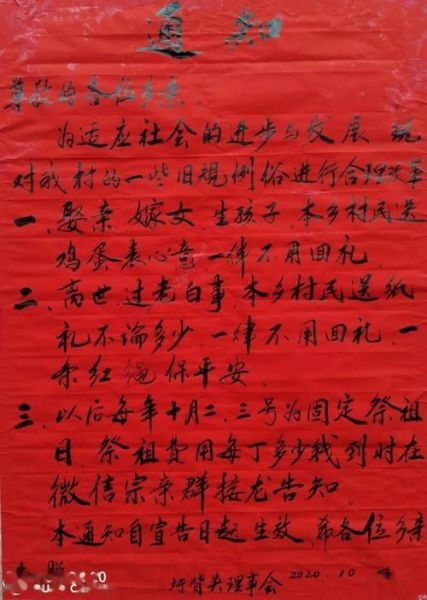 通知
尊敬的各位乡亲
为适应社会的进步与发展 现
对我村的一些旧规例俗进行合理改革
一、娶亲 嫁女 生孩子 本乡村民送
鸡蛋表心意 一律不用回礼
二、离世 过老白事 本乡村民送纸
礼不论多少 一律不用回礼 一
条红绳保平安
三、以后每年十月二、三号为固定祭祖
日 祭祖费用每丁多少钱到时在
微信宗亲群接龙告知
本通知自宣告日起生效 希各位乡亲
圩背头理事会 2020.10